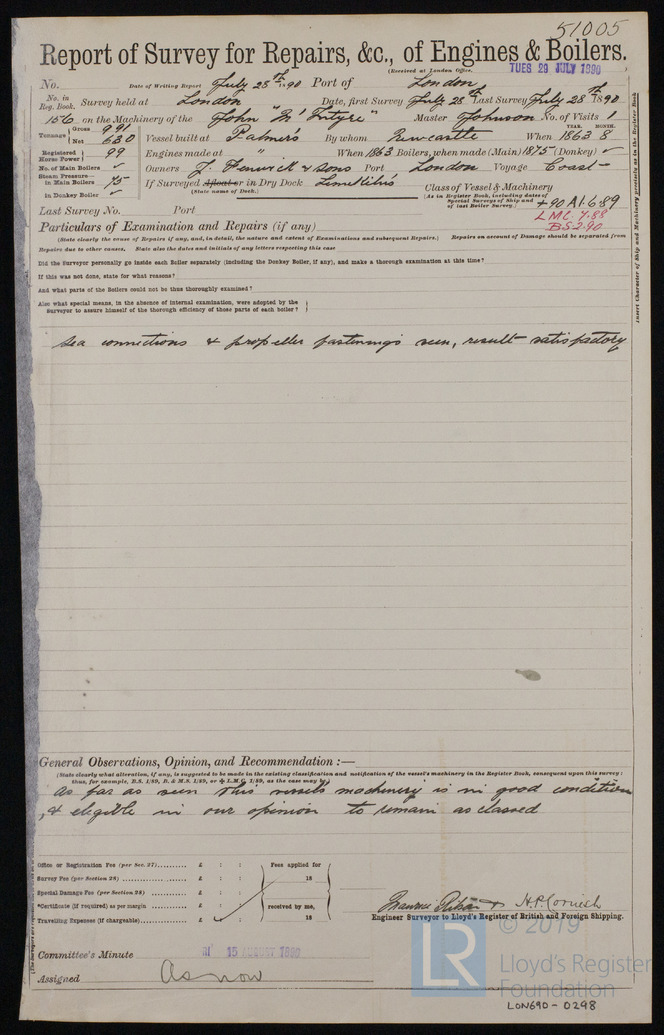 51005
Report of Survey for Repairs, &c., of Engines & Boilers.
(Received at London Office,
TUES 29 JULY 1890
No. Date of Writing Report July 28th 1890 Port of London
No. in Reg. Book. Survey held at London Date, first Survey July 28th Last Survey July 28th 1890
156 on the Machinery of the John "Mc Intyre" Master Johnson No. of Visits 1
Tonnage Gross 991 Net 630 Vessel built at Palmers By whom Newcastle When 1863 8 YEAR. MONTH.
Registered Horse Power 99 Engines made at " When 1863 Boilers, when made (Main) 1875 (Donkey) ✓
No. of Main Boilers ✓ Owners J. Fenwick & sons Port London Voyage Coast
Steam Pressure— in Main Boilers 75 If Surveyed Afloat or in Dry Dock Limekilns
in Donkey Boiler ✓ (State name of Dock.)
Class of Vessel & Machinery
(As in Register Book, including dates of Special Surveys of Ship and of last Boiler Survey.)
+90A1.6.89
LMC. 7.88
BS 2.90
Last Survey No. Port
Particulars of Examination and Repairs (if any)
(State clearly the cause of Repairs if any, and, in detail, the nature and extent of Examinations and subsequent Repairs.) Repairs on account of Damage should be separated from
Repairs due to other causes. State also the dates and initials of any letters respecting this case
Did the Surveyor personally go inside each Boiler separately (including the Donkey Boiler, if any), and make a thorough examination at this time?
If this was not done, state for what reasons?
And what parts of the Boilers could not be thus thoroughly examined?
Also what special means, in the absence of internal examination, were adopted by the
Surveyor to assure himself of the thorough efficiency of those parts of each boiler?
Insert Character of Ship and Machinery precisely as in the Register Book
Sea connections & propeller fastenings seen, result satisfactory
General Observations, Opinion, and Recommendation :—
(State clearly what alteration, if any, is suggested to be made in the existing classification and notification of the vessel's machinery in the Register Book, consequent upon this survey:
thus, for example, B.S. 1/89, B. & M.S. 1/89, or + L.M.C. 1/89, as the case may be)
As far as seen this vessels machinery is in good condition
, & eligible in our opinion to remain as classed
Office or Registration Fee (per Sec. 27).......... £ : : Fees applied for
Survey Fee (per Section 28) .......... £ : : 18
Special Damage Fee (per Section 28) .......... £ : :
*Certificate (if required) as per margin .......... £ : : received by me,
Travelling Expenses (if chargeable).......... £ : : 18
H.P. Cornish
Engineer Surveyor to Lloyd's Register of British and Foreign Shipping.
Committee's Minute 15 AUGUST 1890
Assigned As now
© 2019
LR
Lloyd's Register
Foundation
LON690-0298